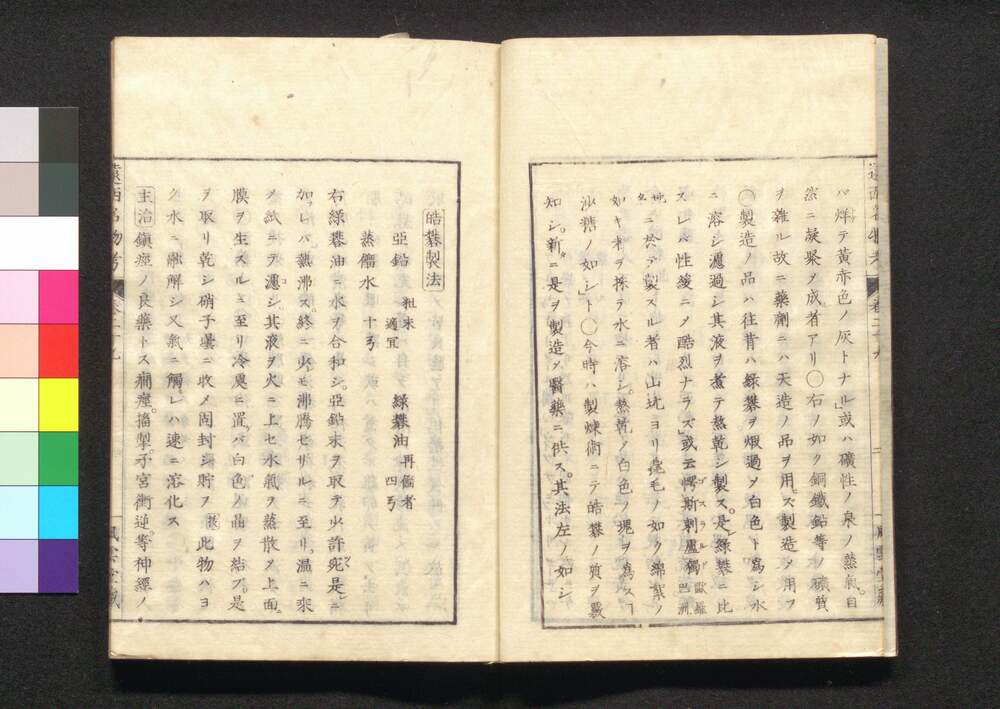 ハ烊テ黄赤色ノ灰トナル」或ハ礦性ノ泉ノ蒸氣。自
然ニ凝聚ノ成者アリ〇石ノ如ク銅鐵鉛等ノ礦質
ヲ雜ル故ニ藥劑ニハ天造ノ品ヲ用ズ製造ノ用フ
〇製造ノ品ハ往昔ハ緑礬ヲ煆過ノ白色ト爲シ水
ニ溶シ濾過シ其液ヲ煮テ熬乾シ製ス。是緑礬ニ比
スレハ性緩ニメ酷烈ナラズ」或云愕斯剌盧獨
ゴスラルド
歐羅巴洲地名
ニ於テ製スル者ハ山坑ヨリ毫毛ノ如ク綿絮ノ
如キ者ヲ採テ水ニ溶シ。熬乾ノ白色ノ塊ヲ爲ス
沙糖ノ如シ」ト〇今時ハ製煉術ニテ皓礬ノ質ヲ
知シ。新ニ是ヲ製造ノ醫藥ニ供ス。其法左ノ如シ
皓礬製法
亞鉛 粗末 適宜 緑礬油 再餾者 四ゟ
蒸餾水 十ゟ
右緑礬油ニ水ヲ合和シ。亞鉛末ヲ取テ少許宛是ニ
加レバ熱沸ス。終ニ火モ沸騰セザルニ至リ。温ニ乘
メ紙ニテ濾シ。其液ヲ火ニ上セ水氣ヲ蒸散メ上面。
膜ヲ生スルニ至リ冷處ニ置バ白色ノ晶ヲ結ブ。是
ヲ取リ乾シ硝子罍ニ收メ固封シ貯フ 按 此物ハヨ
ク水ニ融解シ又氣ニ觸レハ速ニ溶化ス
主治 鎭痙ノ良藥トス癇痙。搐掣。子宮衝逆。等神經ノ